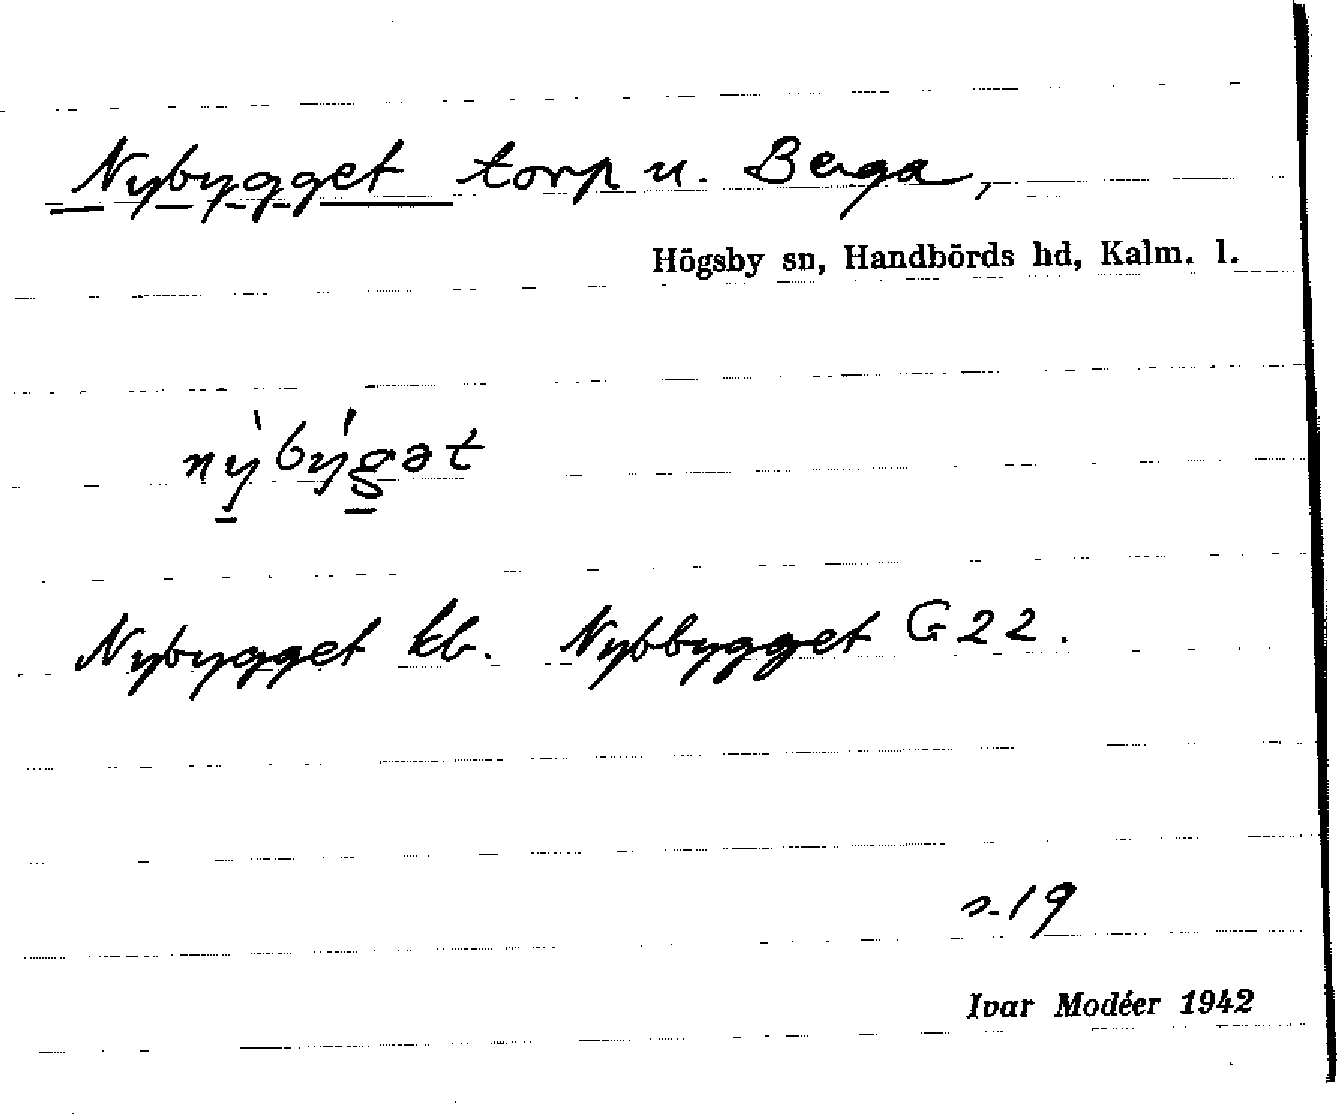 Nybygget torp u. Berga,
Högsby sn, Handbörds hd, Kalm. l.
nỳ̠býg̠ət
Nybygget kb. Nybbygget G22.
s. 19
Ivar Modéer 1942